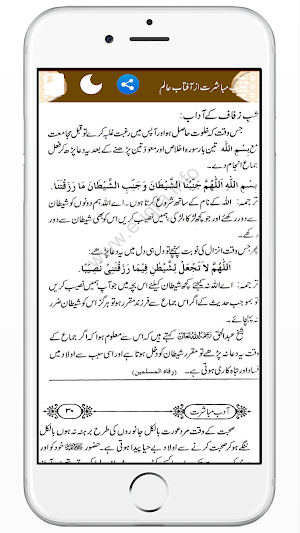 آدابِ مباشرت از آفتابِ عالم
شبِ زفاف کے آداب:
جس وقت کہ خلوت حاصل ہو اور آپس میں رغبت غلبہ کرے تو قبل مجامعت
مع بِسْمِ اللّٰهِ تین بار سورہ اخلاص اور معوذتین پڑھنے کے بعد یہ دعا پڑھ کر فعل
جماع انجام دے۔
بِسْمِ اللّٰهِ اَللّٰهُمَّ جَنِّبْنَا الشَّيْطَانَ وَجَنِّبِ الشَّيْطَانَ مَا رَزَقْتَنَا.
ترجمہ: اللہ کے نام کے ساتھ شروع کرتا ہوں۔ اے اللہ ہم دونوں کو شیطان
سے دور رکھئے اور جو کچھ لڑکا لڑکی ہمیں نصیب کریں اس کو بھی شیطان سے دور
رکھیں۔
پھر جس وقت انزال کی نوبت پہنچے تو دل ہی دل میں یہ دعا پڑھے:
اَللّٰهُمَّ لَا تَجْعَلْ لِلشَّيْطٰنِ فِيْمَا رَزَقْتَنِيْ نَصِيْبًا.
ترجمہ: اے اللہ نہ کیجئے کچھ شیطان کیلئے اس بچہ میں جو آپ ہمیں نصیب کریں
تو بموجب حدیث کے اگر اس جماع سے فرزند مقرر ہو تو ہرگز اس کو شیطان ضرر
نہ پہنچائے۔
شیخ عبدالحق رَحِمَهُ اللّٰهُ کہتے ہیں کہ اس سے معلوم ہوا کہ اگر جماع کے
وقت یہ دعا نہ پڑھے تو مقرر شیطان کو دخل ہوتا ہے اور اسی سبب سے اولاد میں
فساد اور تباہ کاری ہوتی ہے۔ (رفاہ المسلمین)
آدابِ مباشرت ۳۰
صحبت کے وقت مرد عورت بالکل جانوروں کی طرح برہنہ نہ ہوں بالکل
ننگے ہو کر صحبت کرنے سے اولاد بے حیا پیدا ہوتی ہے۔ حضور ﷺ خود کو اور